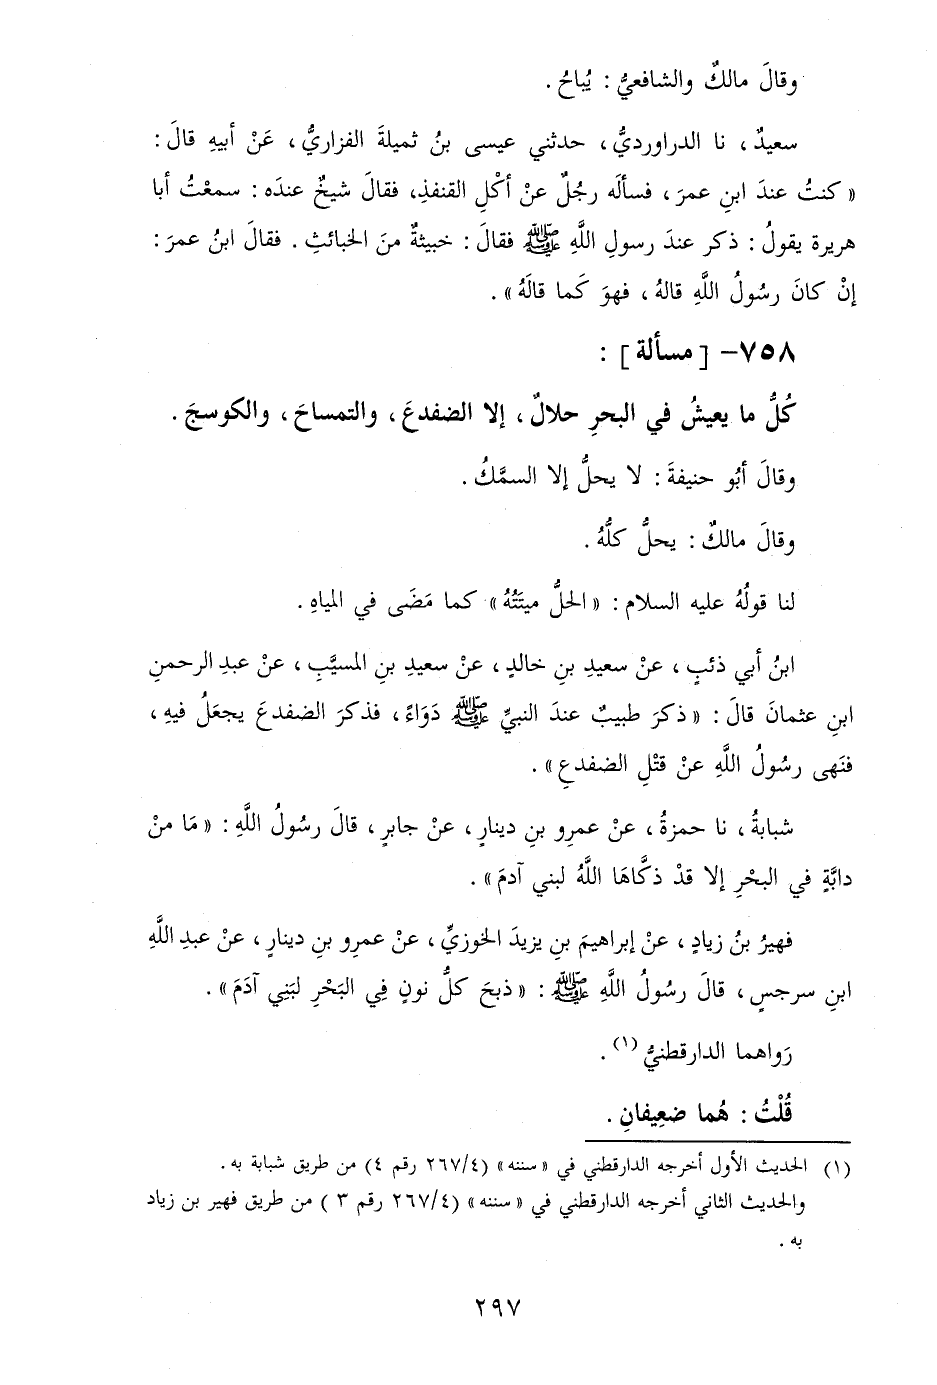 وقالَ مالكٌ والشافعيُّ : يُباحُ .
سعيدٌ ، نا الدراورديُّ ، حدثني عيسى بنُ ثميلةَ الفزاريُّ ، عَنْ أبيهِ قالَ :
« كنتُ عندَ ابنِ عمرَ ، فسألَه رجُلٌ عنْ أكْلِ القنفذِ، فقالَ شيخٌ عندَه : سمعْتُ أبا
هريرة يقولُ : ذكر عندَ رسولِ اللَّهِ ﷺ فقالَ : خبيثةٌ منَ الخبائثِ . فقالَ ابنُ عمرَ :
إنْ كانَ رسُولُ اللَّهِ قالهُ ، فهوَ كَما قالَهُ » .
٧٥٨- [ مسألة ] :
كُلُّ ما يعيشُ في البحرِ حلالٌ ، إلا الضفدعَ ، والتمساحَ ، والكوسجَ .
وقالَ أبُو حنيفةَ : لا يحلُّ إلا السمَّكُ .
وقالَ مالكٌ : يحلُّ كلَّهُ .
لنا قولُهُ عليه السلام : « الحلُّ ميتَتُهُ » كما مَضَى في المياهِ .
ابنُ أبي ذئبٍ ، عنْ سعيدِ بنِ خالدٍ ، عنْ سعيدِ بنِ المسيَّبِ ، عنْ عبدِ الرحمنِ
ابنِ عثمانَ قالَ : « ذكرَ طبيبٌ عندَ النبيِّ ﷺ دَوَاءً ، فذكرَ الضفدعَ يجعَلُ فيهِ ،
فنَهى رسُولُ اللَّهِ عنْ قتْلِ الضفدعِ » .
شبابةُ ، نا حمزةُ ، عنْ عمرِو بنِ دينارٍ ، عنْ جابرٍ ، قالَ رسُولُ اللَّهِ : « مَا منْ
دابَّةٍ في البحْرِ إلا قدْ ذكَّاهَا اللَّهُ لبني آدمَ » .
فهيرُ بنُ زيادٍ ، عنْ إبراهيمَ بنِ يزيدَ الخوزيِّ ، عنْ عمرِو بنِ دينارٍ ، عنْ عبدِ اللَّهِ
ابنِ سرجسٍ ، قالَ رسُولُ اللَّهِ ﷺ : « ذبحَ كلُّ نونٍ فِي البَحْرِ لبَنِي آدَمَ » .
رَواهما الدارقطنيُّ (١) .
قُلْتُ : هُما ضعِيفانِ .
(١) الحديث الأول أخرجه الدارقطني في « سننه » (٢٦٧/٤ رقم ٤) من طريق شبابة به .
والحديث الثاني أخرجه الدارقطني في « سننه » (٢٦٧/٤ رقم ٣ ) من طريق فهير بن زياد
به .
٢٩٧